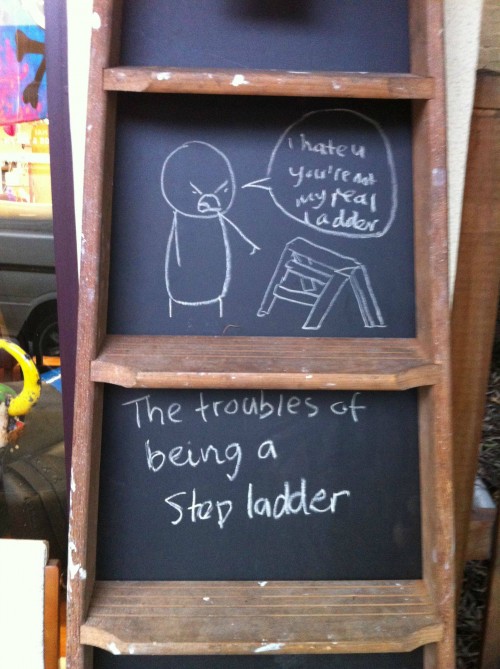 i hate u
you're not
my real
ladder
The troubles of
being a
Step ladder